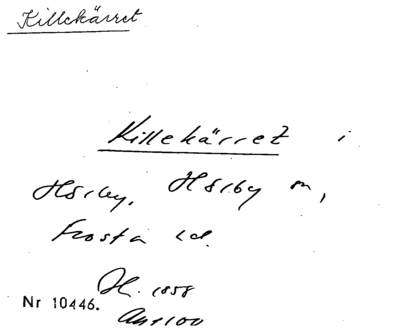 Killekärret
Killekärret i
Hörby, Hörby sn,
Frosta hd.
H. 1858
Nr 10446.